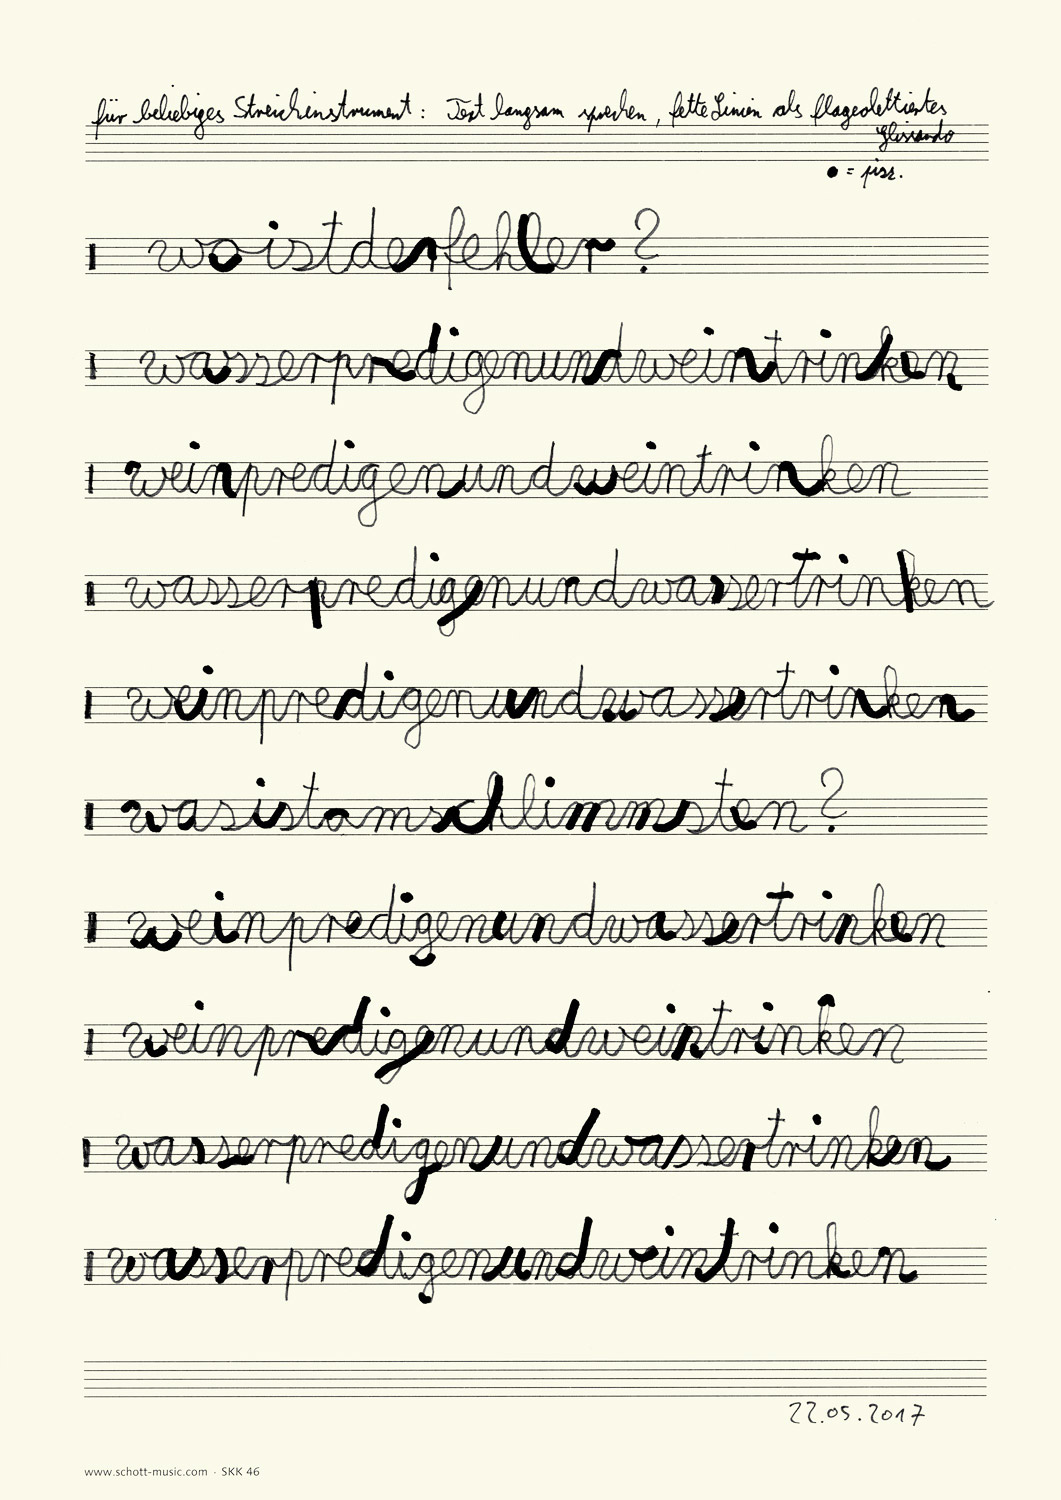 für beliebiges Streichinstrument: Text langsam sprechen, fette Linien als flageolettiertes
Glissando
● = pizz.
woistderfehler?
wasserpredigenundweintrinken
weinpredigenundweintrinken
wasserpredigenundwassertrinken
weinpredigenundwassertrinken
wasistamschlimmsten?
weinpredigenundwassertrinken
weinpredigenundweintrinken
wasserpredigenundwassertrinken
wasserpredigenundweintrinken
22.05.2017
www.schott-music.com · SKK 46